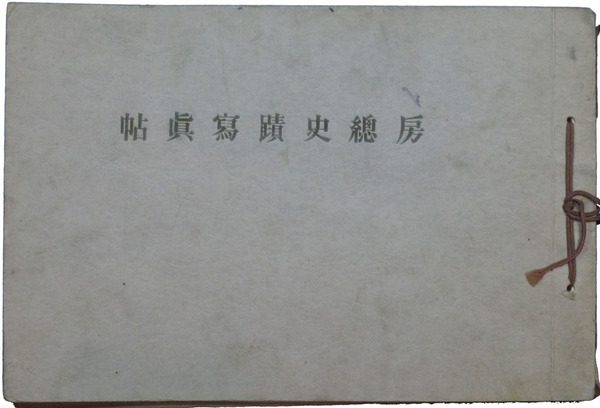 房總史蹟寫眞帖